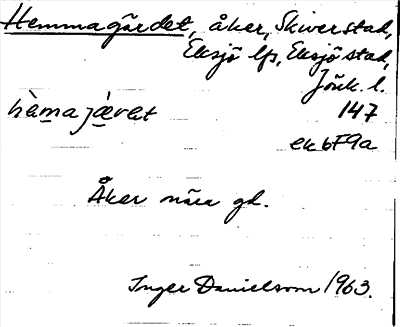 Hemmagärdet, åker, Skiverstad,
Eksjö lfs, Eksjö stad,
Jönk. l.
hèmajæ̀ret 147
ek 6F9a
Åker nära gd.
Inger Danielsson 1963.